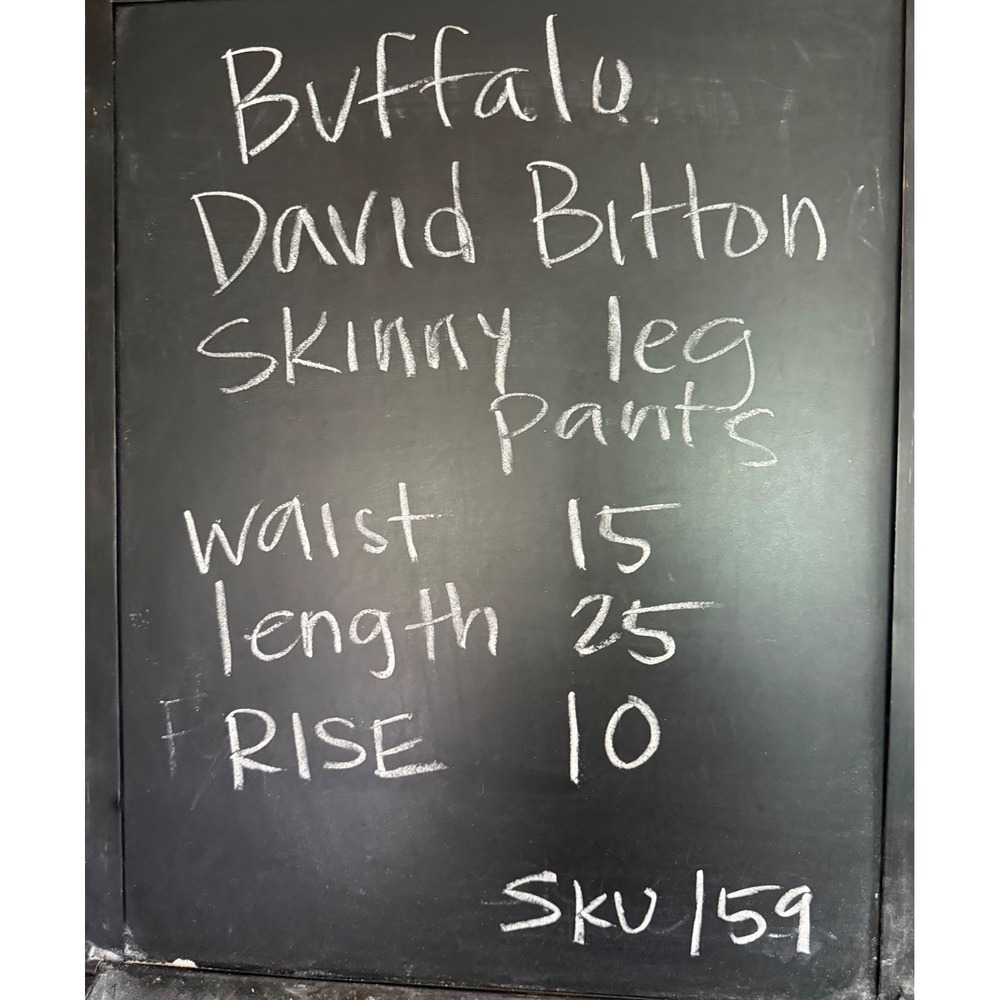 Buffalo
David Bitton
Skinny leg
pants
waist 15
length 25
F RISE 10
SKU 159